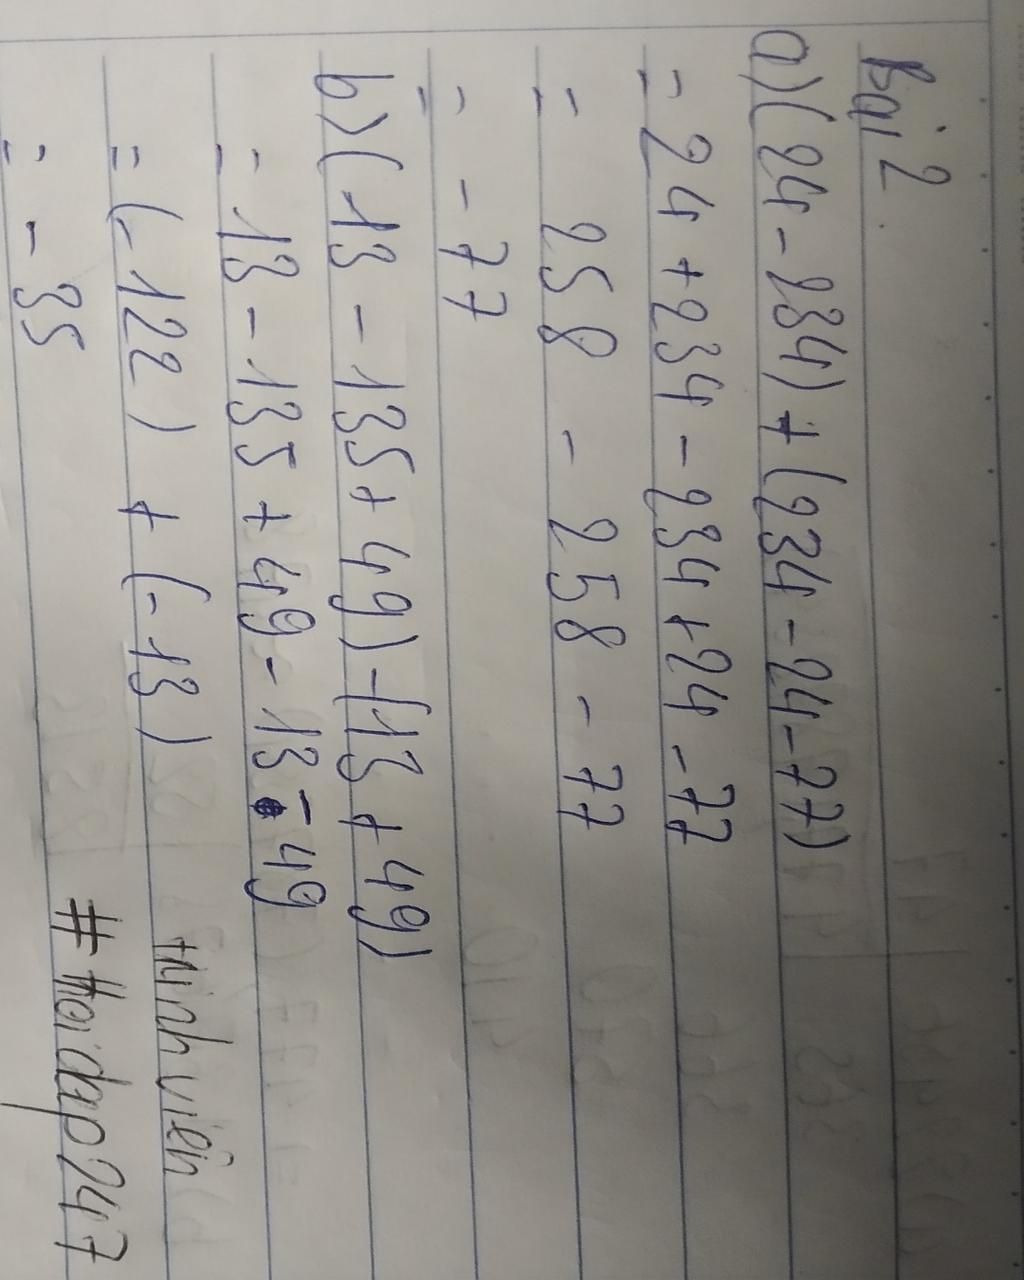 Bài 2
a) (24 - 234) + (234 - 24 - 77)
= 24 + 234 - 234 + 24 - 77
= 258 - 258 - 77
= - 77
b) (13 - 135 + 49) - (13 + 49)
= 13 - 135 + 49 - 13 - 49
= (-122) + (-13)
= - 35
thành viên
# Hoidap247